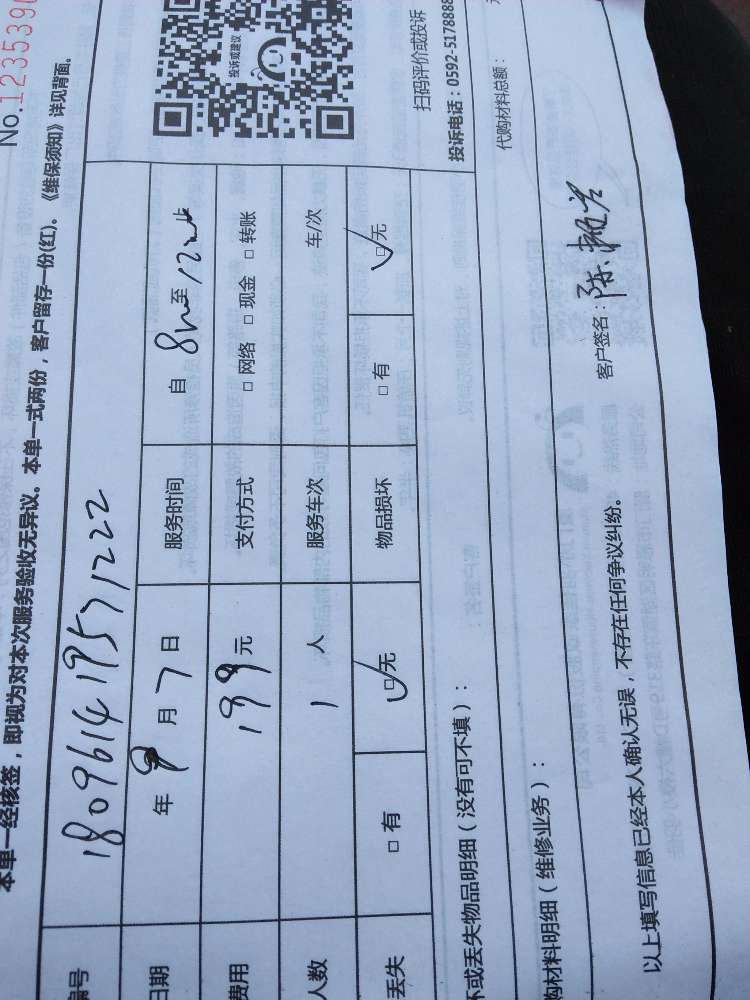 No.1235390
本单一经核签，即视为对本次服务验收无异议。本单一式两份，客户留存一份(红)。《维保须知》详见背面。
编号 180961419571222
日期 年 9 月 7 日 服务时间 自 8 至 12
费用 199 元 支付方式 □ 网络 □ 现金 □ 转账
人数 1 人 服务车次 车/次
丢失 □ 有 ☑ 无 物品损坏 □ 有 ☑ 无
投诉或建议
扫码评价或投诉
投诉电话：0592-5178888
坏或丢失物品明细（没有可不填）：
代购材料总额：
购材料明细（维修业务）：
以上填写信息已经本人确认无误，不存在任何争议纠纷。
客户签名：陈